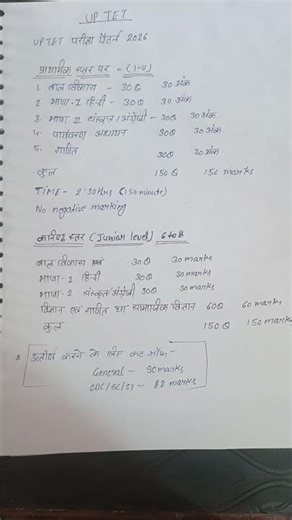 UP TET
UPTET परीक्षा पैटर्न 2026
प्राथमिक स्तर पर - (I-V)
1. बाल विकास - 30Q 30 अंक
2. भाषा-I हिन्दी - 30Q 30 अंक
3. भाषा II संस्कृत/अंग्रेजी - 30Q 30 अंक
4. पर्यावरण अध्ययन 30Q 30 अंक
5. गणित 30Q 30 अंक
कुल 150Q 150 marks
TIME - 2:30Hrs (150 minute)
No negative marking
स्तर (Junior level) 6 to 8
बाल विकास 30Q 30 marks
भाषा-1 हिन्दी 30Q 30 marks
भाषा-2 संस्कृत/अंग्रेजी 30Q 30 marks
विज्ञान एवं गणित या सामाजिक विज्ञान 60Q 60 marks
कुल 150Q 150 marks
उत्तीर्ण करने के लिए कट ऑफ -
General - 90 marks
OBC/SC/ST - 82 marks